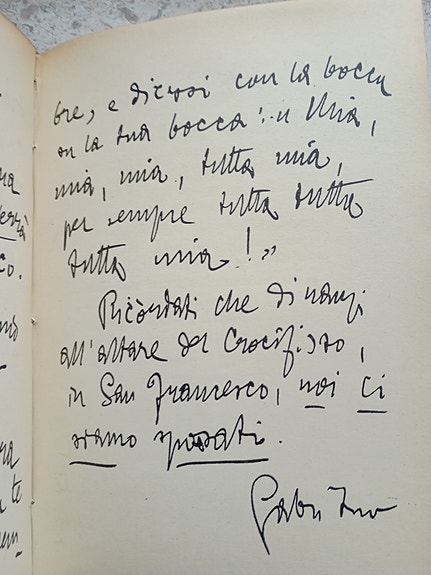 bre, e dicessi con la bocca
su la tua bocca: « Mia,
mia, mia, tutta mia,
per sempre tutta tutta
tutta mia! »
Ricòrdati che dinanzi
all'altare del Crocifisso,
in San Francesco, noi ci
siamo sposati.
Gabri Tuo